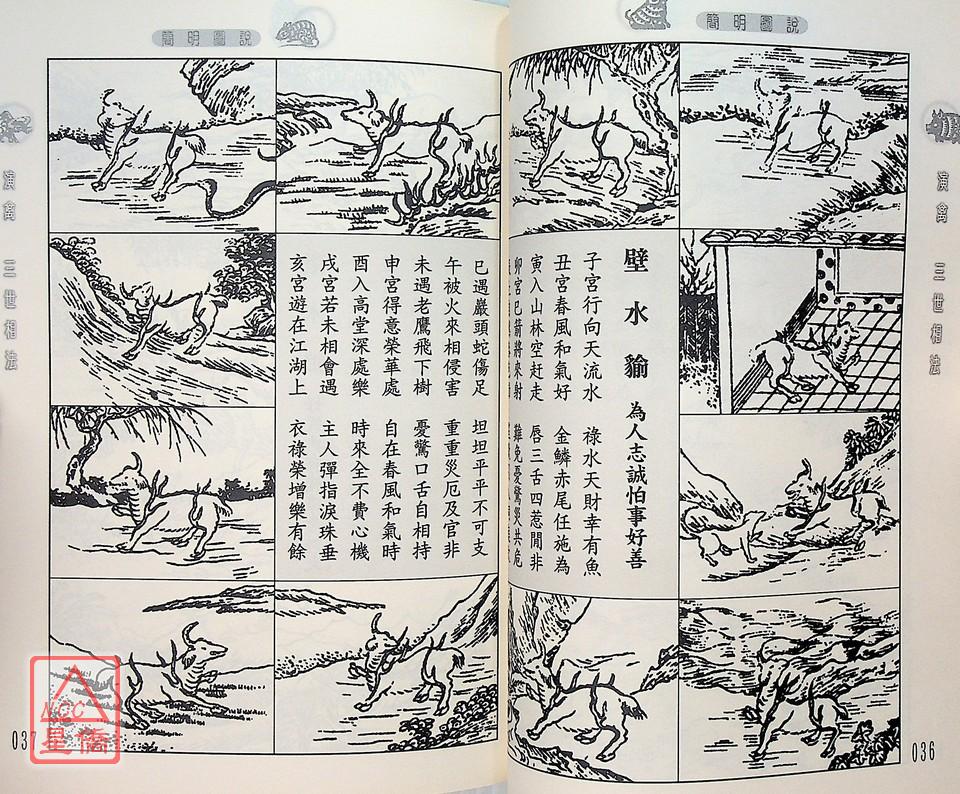 簡明圖說
演禽 三世相法
壁水貐 為人志誠怕事好善
子宮行向天流水 祿水天財幸有魚
丑宮春風和氣好 金鱗赤尾任施為
寅入山林空赶走 唇三舌四惹閒非
卯宮已箭將來射 難免憂驚災共危
036
簡明圖說
巳遇巖頭蛇傷足 坦坦平平不可支
午被火來相侵害 重重災厄及官非
未遇老鷹飛下樹 憂驚口舌自相持
申宮得意榮華處 自在春風和氣時
酉入高堂深處樂 時來全不費心機
戌宮若未相會遇 主人彈指淚珠垂
亥宮遊在江湖上 衣祿榮增樂有餘
演禽 三世相法
037
NCC
星僑